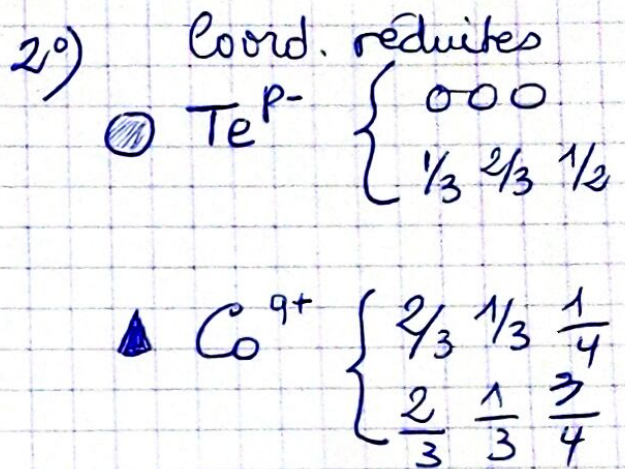 2°) Coord. réduites
Te^p- { 0 0 0
1/3 2/3 1/2
Co^q+ { 2/3 1/3 1/4
2/3 1/3 3/4